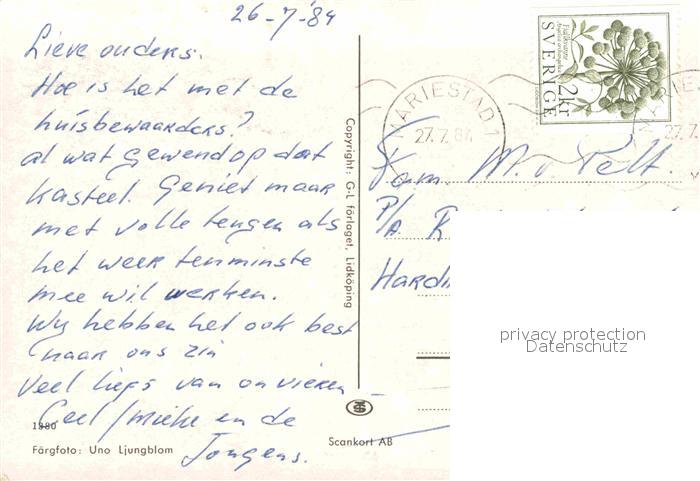 26-7-'84
Lieve ouders.
Hoe is het met de
huisbewaarders?
al wat gewend op dat
kasteel. Geniet maar
met volle teugen als
het weer tenminste
mee wil werken.
Wy hebben het ook best
naar ons zin
Veel liefs van on vieren
Ceel / Mieke en de
Jongens.
1880
Färgfoto: Uno Ljungblom
Scankort AB
Copyright: G-L förlaget, Lidköping
MARIESTAD 1
27.7.84
SVERIGE
2kr
Fam. M. v. Pelt.
P/A R
Hardin
27.7.
privacy protection
Datenschutz